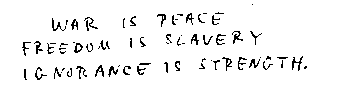 WAR IS PEACE
FREEDOM IS SLAVERY
IGNORANCE IS STRENGTH.